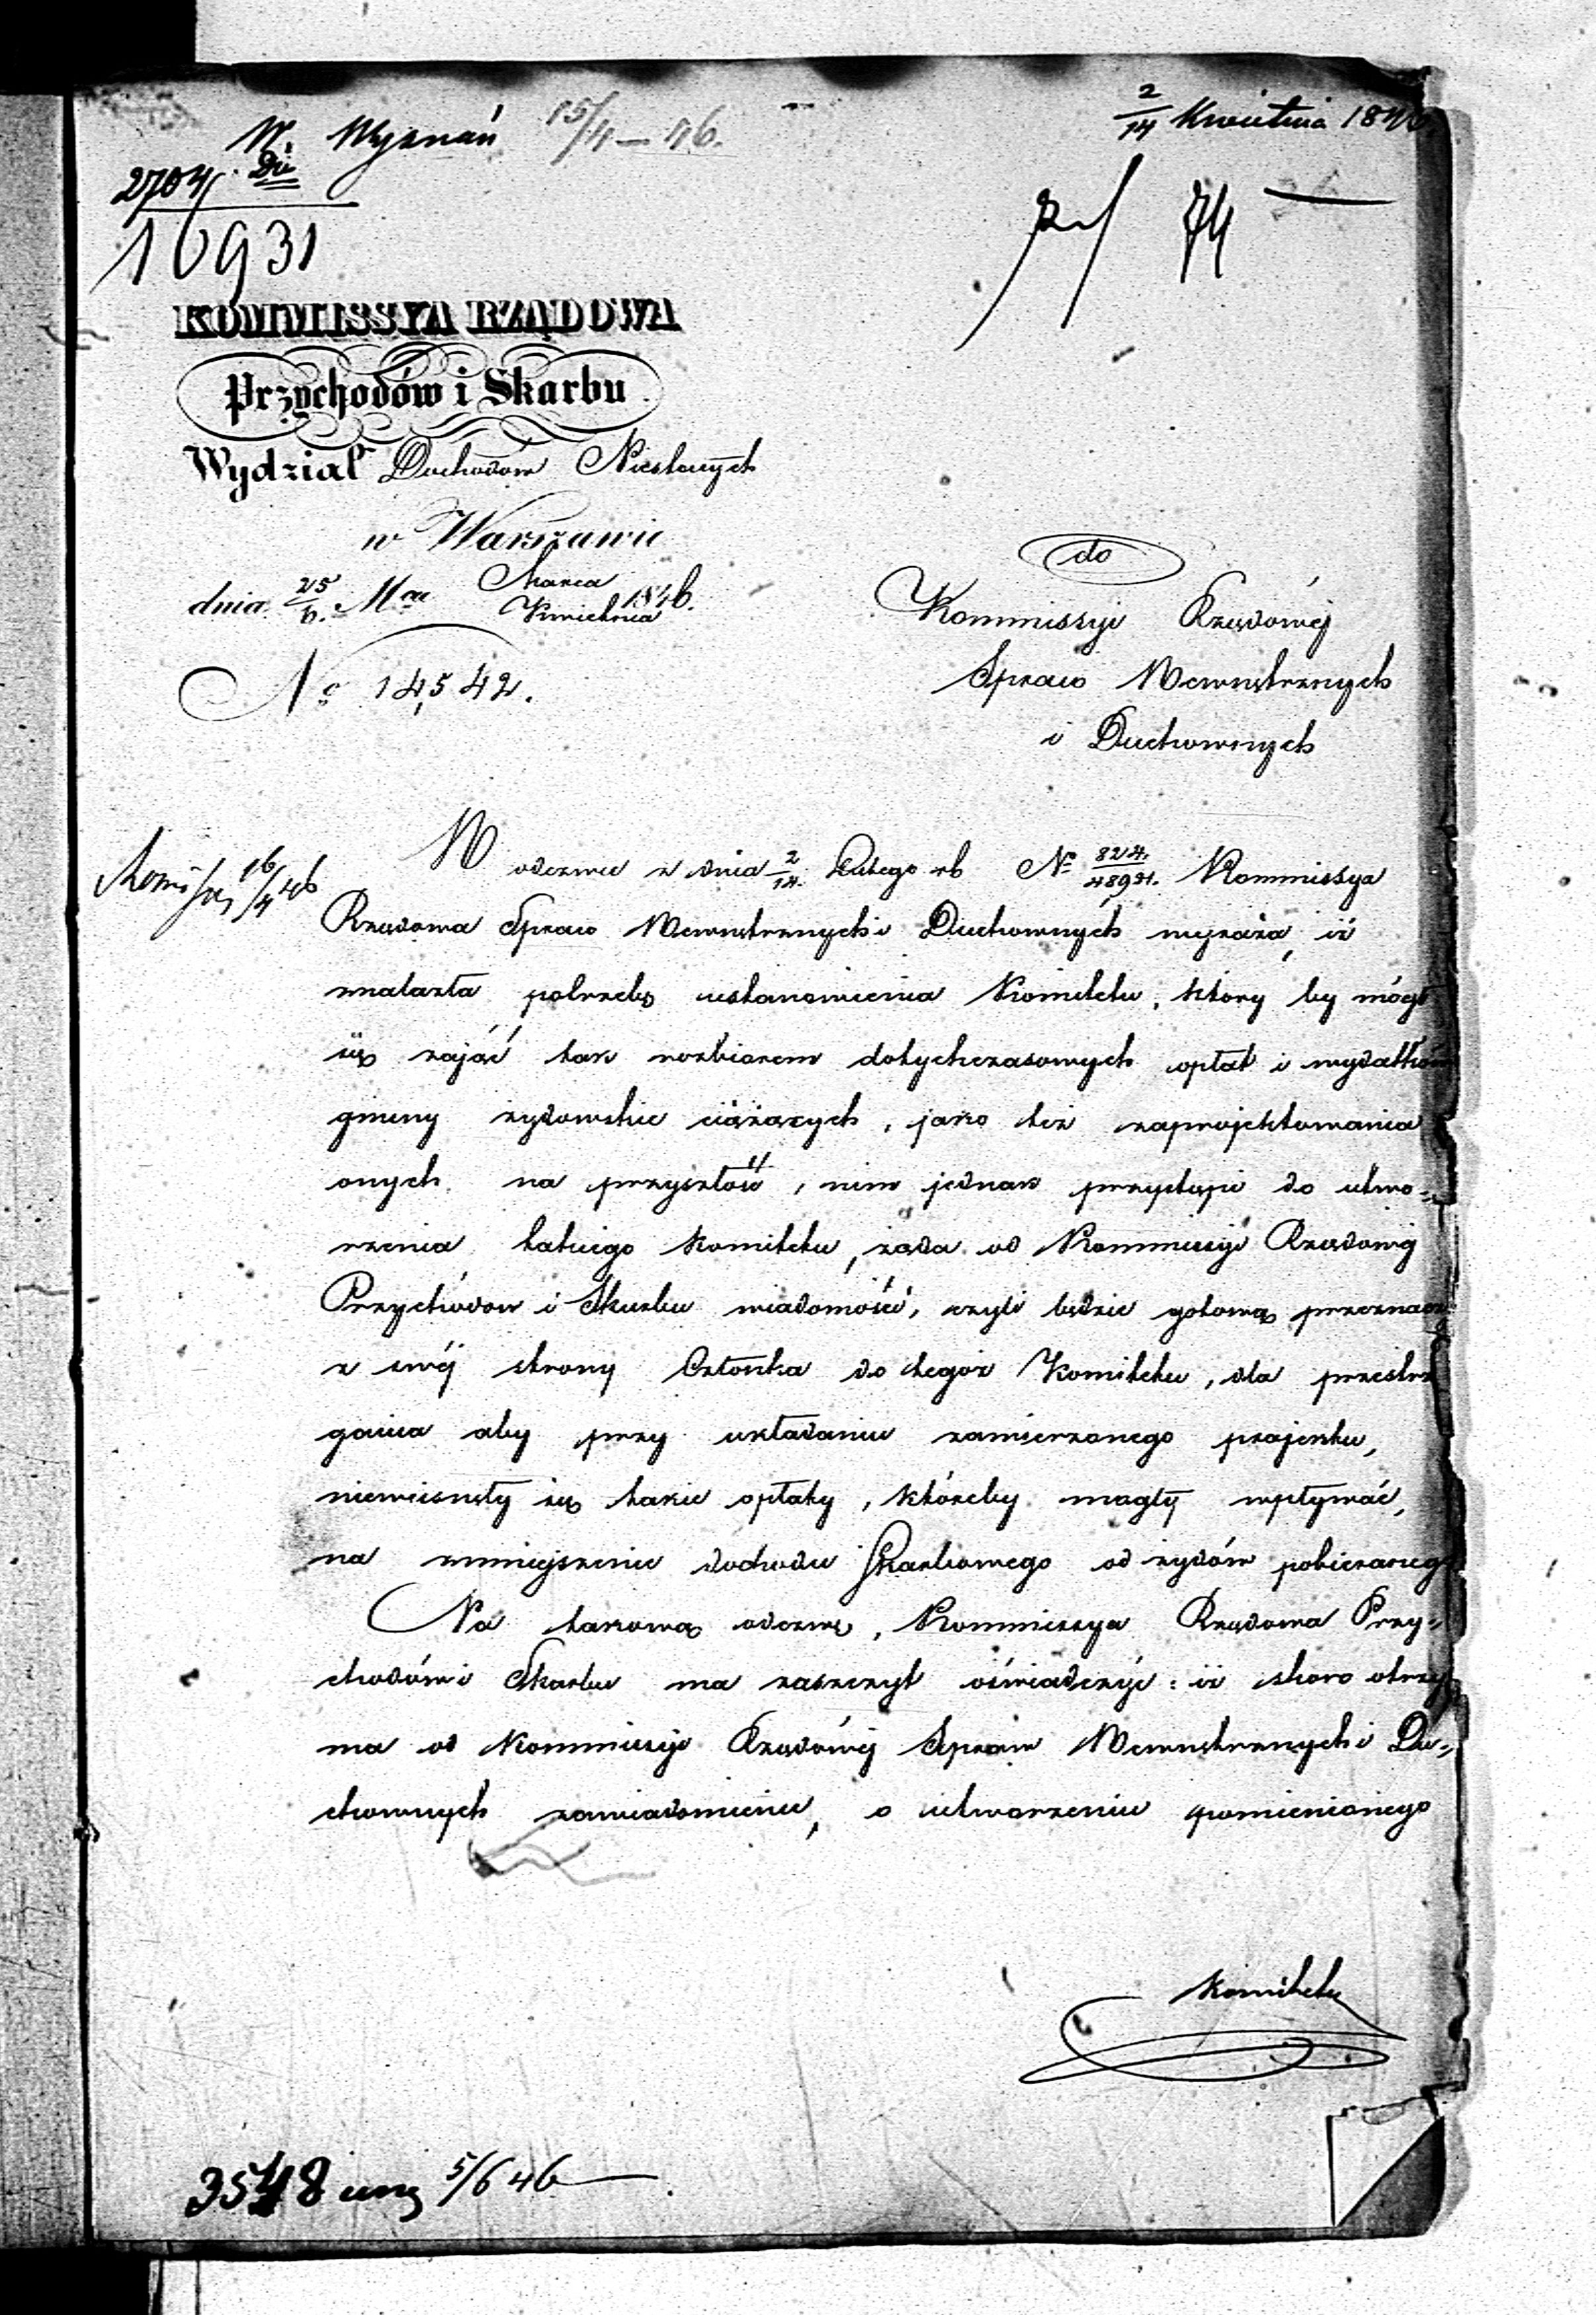 W. Wyznań 15/4 – 46.
2/14 Kwietnia 1846.
2704
16931
74
KOMMISSYA RZĄDOWA
Przychodów i Skarbu
Wydział Dochodów Niestałych
w Warszawie
dnia 25/6. Mca Marca Kwietnia 1846.
No 14,542.
do
Kommissyi Rządowéj
Spraw Wewnętrznych
i Duchownych
16/4 46
W odezwie z dnia 2/14. Lutego rb No 824./4893. Kommissya
Rządowa Spraw Wewnętrznych i Duchownych wyraża, iż
znalazła potrzebę ustanowienia Komitetu, który by mógł
się zająć tak rozbiorem dotychczasowych opłat i wydatków
gminy żydowskie ciążących, jako też zaprojektowania
onych na przyszłość, nim jednak przystąpi do utwo=
rzenia takiego Komitetu, żąda od Kommissyi Rządowéj
Przychodów i Skarbu wiadomości, czyli będzie gotową przeznacz
z swéj strony Członka do tegoż Komitetu, dla przestrz
gania aby przy układaniu zamierzonego projektu,
niewcisnęły się takie opłaty, któreby mogły wpływać,
na zmniejszenie dochodu Skarbowego od żydów pobieraneg
Na takową odezwę, Kommissya Rządowa Przy=
chodów i Skarbu ma zaszczyt oświadczyć: iż skoro otrzy
ma od Kommissyi Rządowéj Spraw Wewnętrznych i Du=
chownych zawiadomienie, o utworzeniu pomienionego
Komitetu
3548 5/6 46